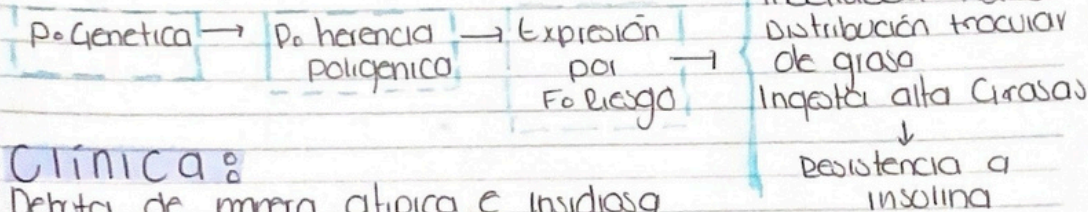 P. Genetica → P. herencia poligenica → Expresión por F. Riesgo →
Distribución trocular
de grasa
Ingesta alta Grasas
↓
Resistencia a
insolina
Clínica:
Debuta de manera atipica e insidiosa